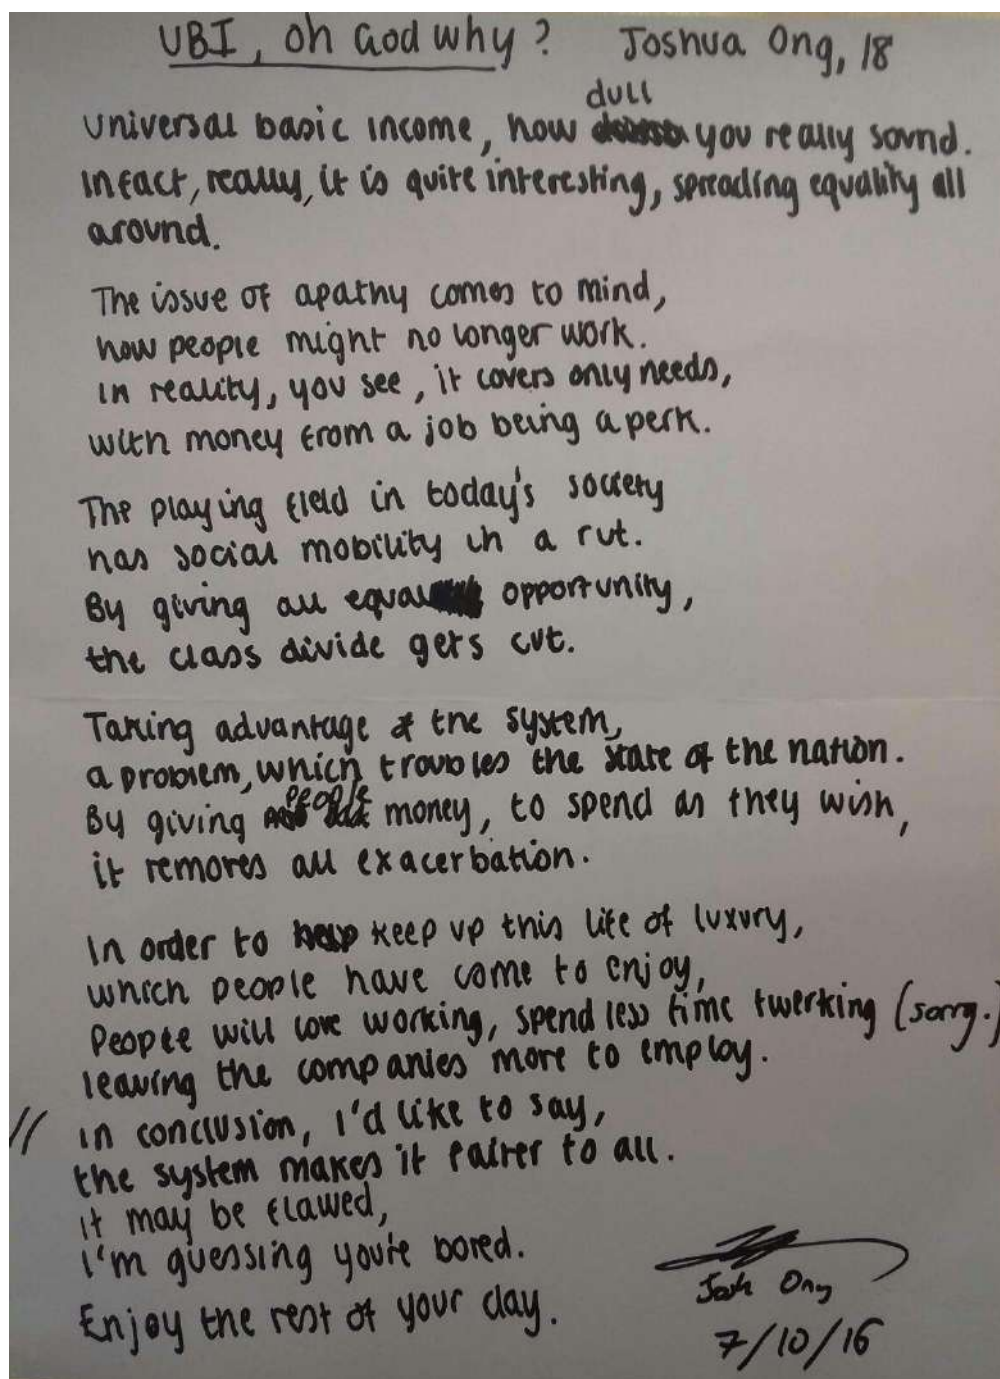 UBI, oh God why? Joshua Ong, 18
dull
Universal basic income, how you really sound.
Infact, really, it is quite interesting, spreading equality all
around.
The issue of apathy comes to mind,
how people might no longer work.
In reality, you see, it covers only needs,
with money from a job being a perk.
The playing field in today's society
has social mobility in a rut.
By giving all equal opportunity,
the class divide gets cut.
Taking advantage of the system,
a problem, which troubles the state of the nation.
people
By giving money, to spend as they wish,
it removes all exacerbation.
In order to keep up this life of luxury,
which people have come to enjoy,
People will love working, spend less time twerking (sorry.)
leaving the companies more to employ.
// In conclusion, I'd like to say,
the system makes it fairer to all.
It may be flawed,
I'm guessing you're bored.
Enjoy the rest of your day.
Josh Ong
7/10/16